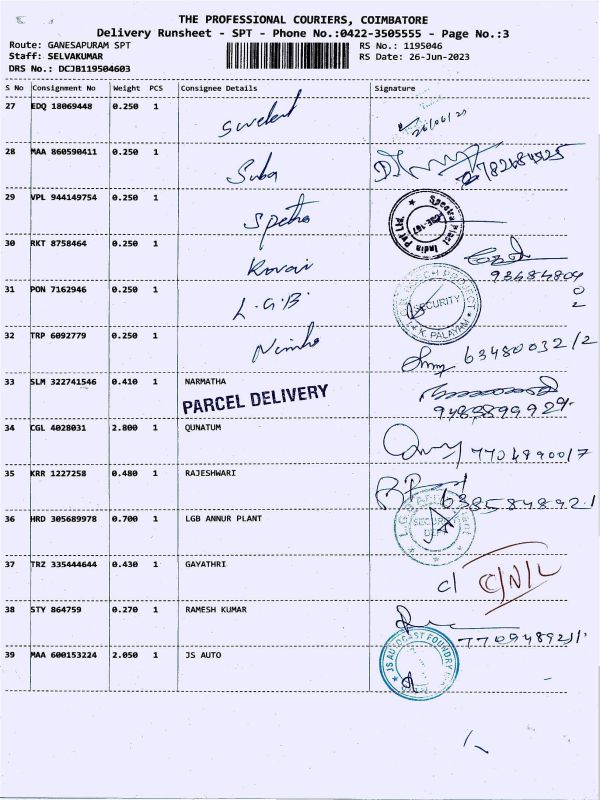 THE PROFESSIONAL COURIERS, COIMBATORE
Delivery Runsheet - SPT - Phone No.:0422-3505555 - Page No.:3
Route: GANESAPURAM SPT
RS No.: 1195046
Staff: SELVAKUMAR
RS Date: 26-Jun-2023
DRS No.: DCJB119504603
S No Consignment No Weight PCS Consignee Details Signature
27 EDQ 18069448 0.250 1
26/06/23
28 MAA 860590411 0.250 1 Suba
29 VPL 944149754 0.250 1 Spetro
30 RKT 8758464 0.250 1 Kovai
31 PON 7162946 0.250 1 L.G.B.
SECURITY
K. PALAYAM
32 TRP 6092779 0.250 1
33 SLM 322741546 0.410 1 NARMATHA
PARCEL DELIVERY
34 CGL 4028031 2.800 1 QUNATUM
35 KRR 1227258 0.480 1 RAJESHWARI
36 HRD 305689978 0.700 1 LGB ANNUR PLANT
SECURITY
DEPT
37 TRZ 335444644 0.430 1 GAYATHRI
C/ C/N/L
38 STY 864759 0.270 1 RAMESH KUMAR
39 MAA 600153224 2.050 1 JS AUTO
JS AUTOCAST FOUNDRY